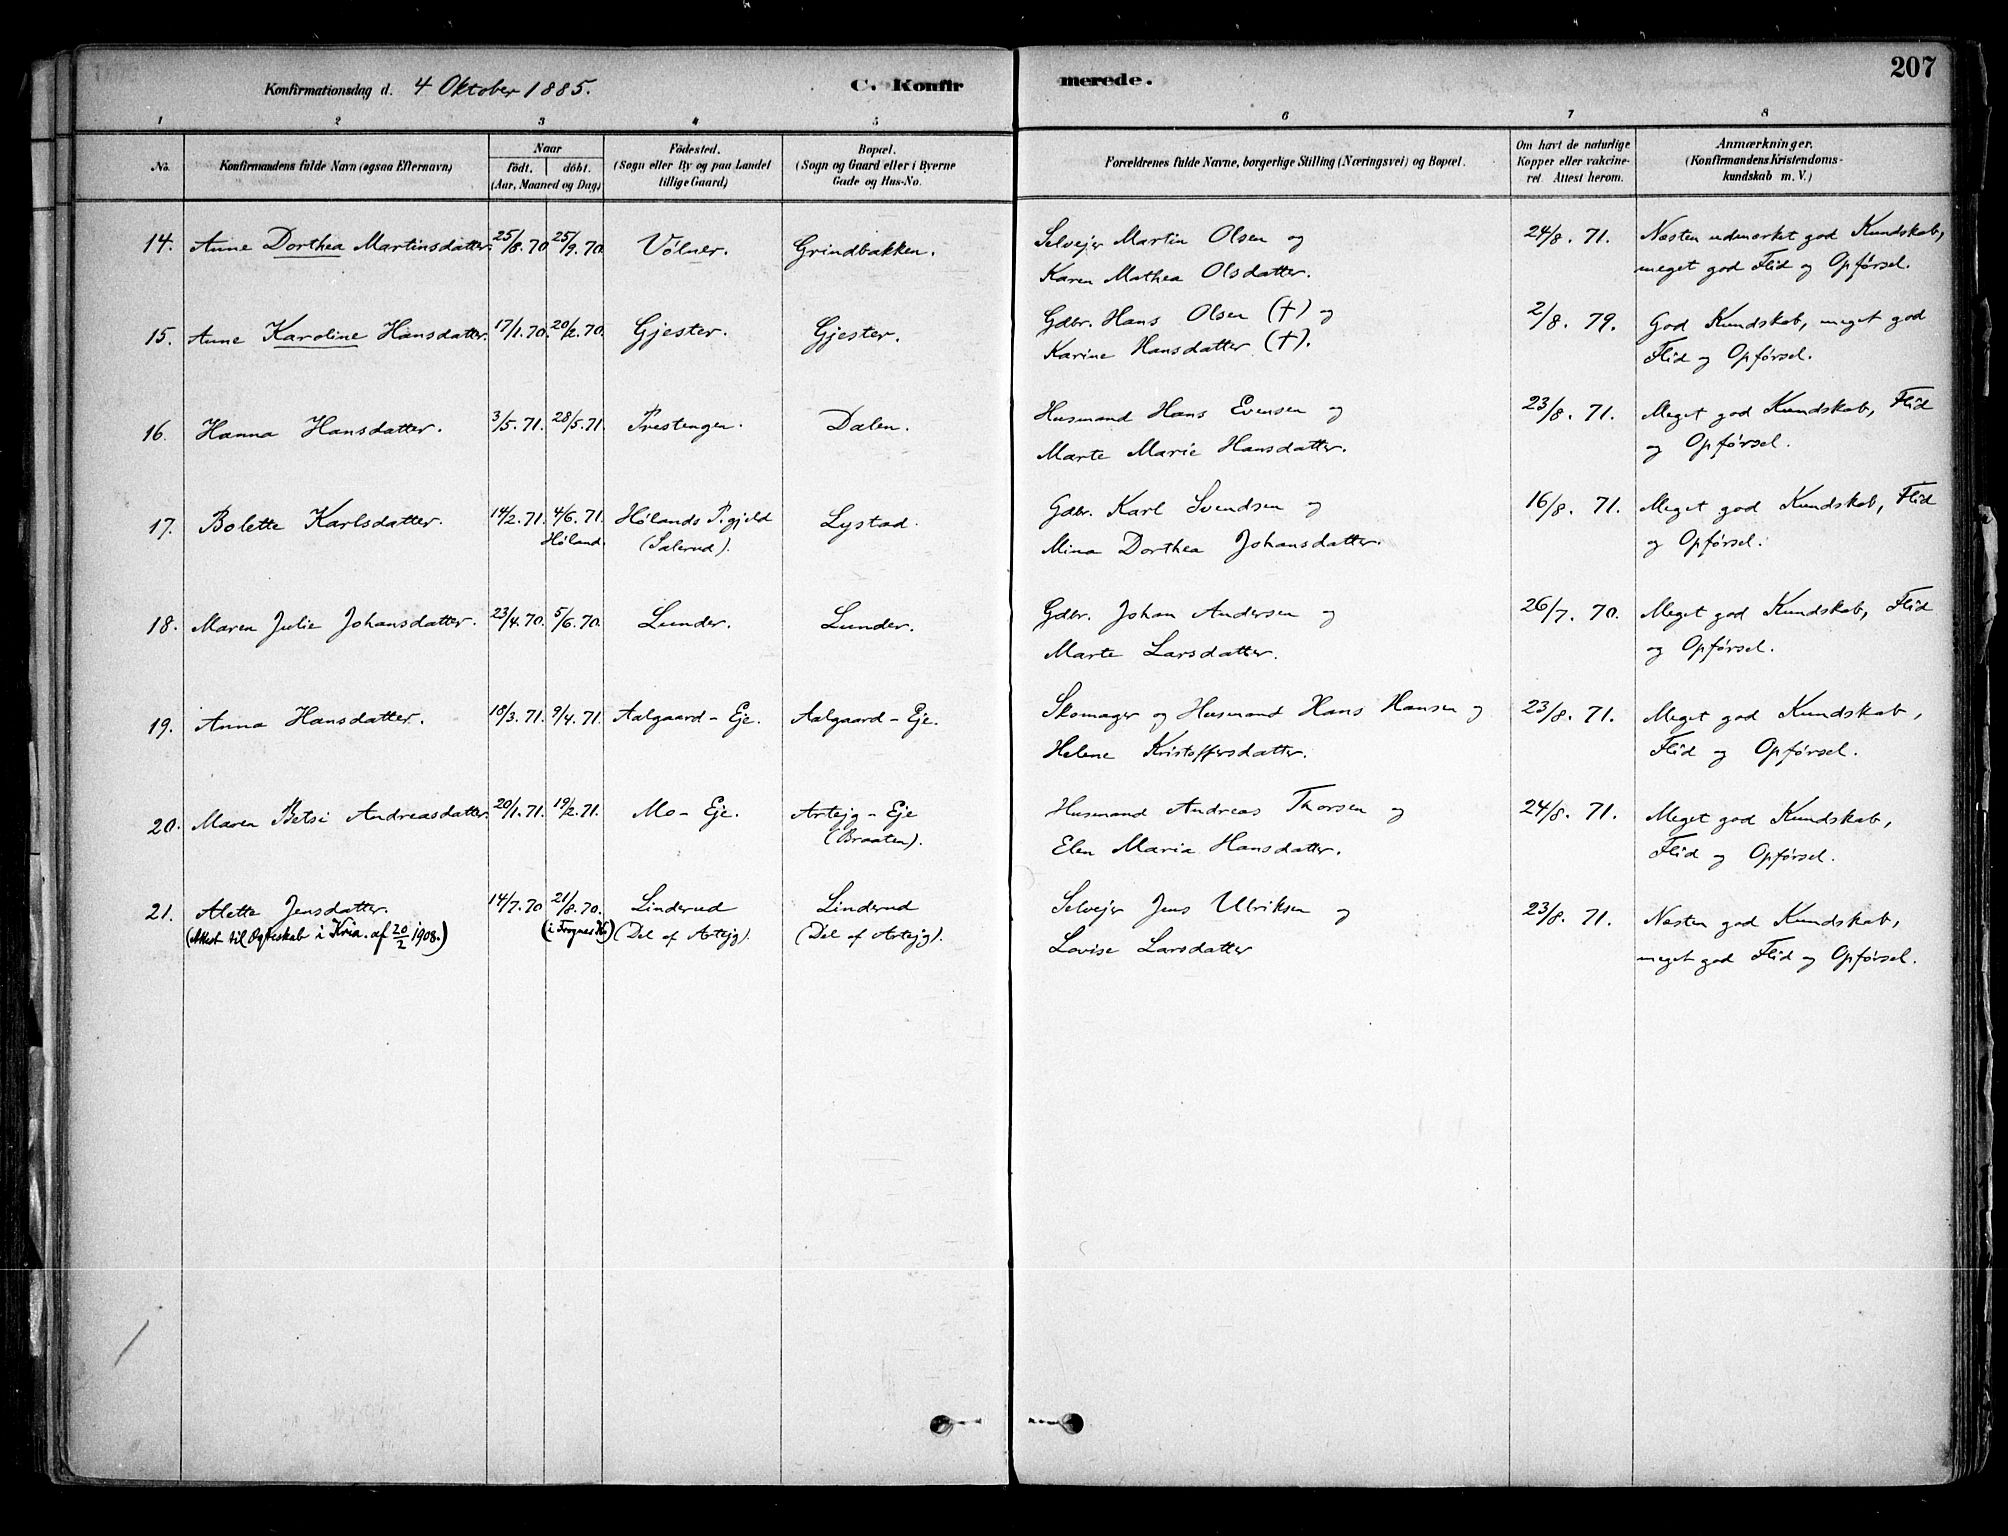 207
Konfirmationsdag d. 4 Oktober 1885.
C. Konfirmerede.
1 2 3 4 5 6 7 8
No.
Konfirmandens fulde Navn (ogsaa Efternavn)
Naar
födt. döbt.
(Aar, Maaned og Dag)
Födested.
(Sogn eller By og paa Landet
tillige Gaard)
Bopæl.
(Sogn og Gaard eller i Byerne
Gade og Hus-No.
Forældrenes fulde Navne, borgerlige Stilling (Næringsvei) og Bopæl.
Om havt de naturlige
Kopper eller vakcine-
ret Attest herom.
Anmærkninger.
(Konfirmandens Kristendoms-
kundskab m. V.)
14. Anne Dorthea Martinsdatter. 25/8. 70. 25/9. 70. Völner. Grindbakken. Selvejer Martin Olsen og 24/8. 71. Næsten udmærket god Kundskab,
Karen Mathea Olsdatter. meget god Flid og Opførsel.
15. Anne Karoline Hansdatter. 17/1. 70. 20/2. 70. Gjester. Gjester. Gdbr. Hans Olsen (†) og 2/8. 79. God Kundskab, meget god
Karine Hansdatter (†). Flid og Opførsel.
16. Hanna Hansdatter. 3/5. 71. 28/5. 71. Prestengen. Dalen. Husmand Hans Evensen og 23/8. 71. Meget god Kundskab, Flid
Marte Marie Hansdatter. og Opførsel.
17. Bolette Karlsdatter. 14/2. 71. 4/6. 71. Hølands P.gjeld Lystad. Gdbr. Karl Svendsen og 16/8. 71. Meget god Kundskab, Flid
Høland. (Salerud). Mina Dorthea Johansdatter. og Opførsel.
18. Maren Julie Johansdatter. 23/4. 70. 5/6. 70. Lunder. Lunder. Gdbr. Johan Andersen og 26/7. 70. Meget god Kundskab, Flid
Marte Larsdatter. og Opførsel.
19. Anna Hansdatter. 18/3. 71. 9/4. 71. Aalgaard-Eje. Aalgaard-Eje. Skomager og Husmand Hans Hansen og 23/8. 71. Meget god Kundskab,
Helene Kristoffersdatter. Flid og Opførsel.
20. Maren Betsi Andreasdatter. 20/1. 71. 19/2. 71. Mo-Eje. Artejg-Eje Husmand Andreas Thorsen og 24/8. 71. Meget god Kundskab,
(Braaten). Elen Maria Hansdatter. Flid og Opførsel.
21. Alette Jensdatter. 14/7. 70 21/8. 70. Linderud Linderud Selvejer Jens Ulriksen og 23/8. 71. Næsten god Kundskab,
(Attest til Ægteskab i Kria. af 20/2 1908.) (i Frognes K.) (Del af Artejg). (Del af Artejg). Lovise Larsdatter meget god Flid og Opførsel.